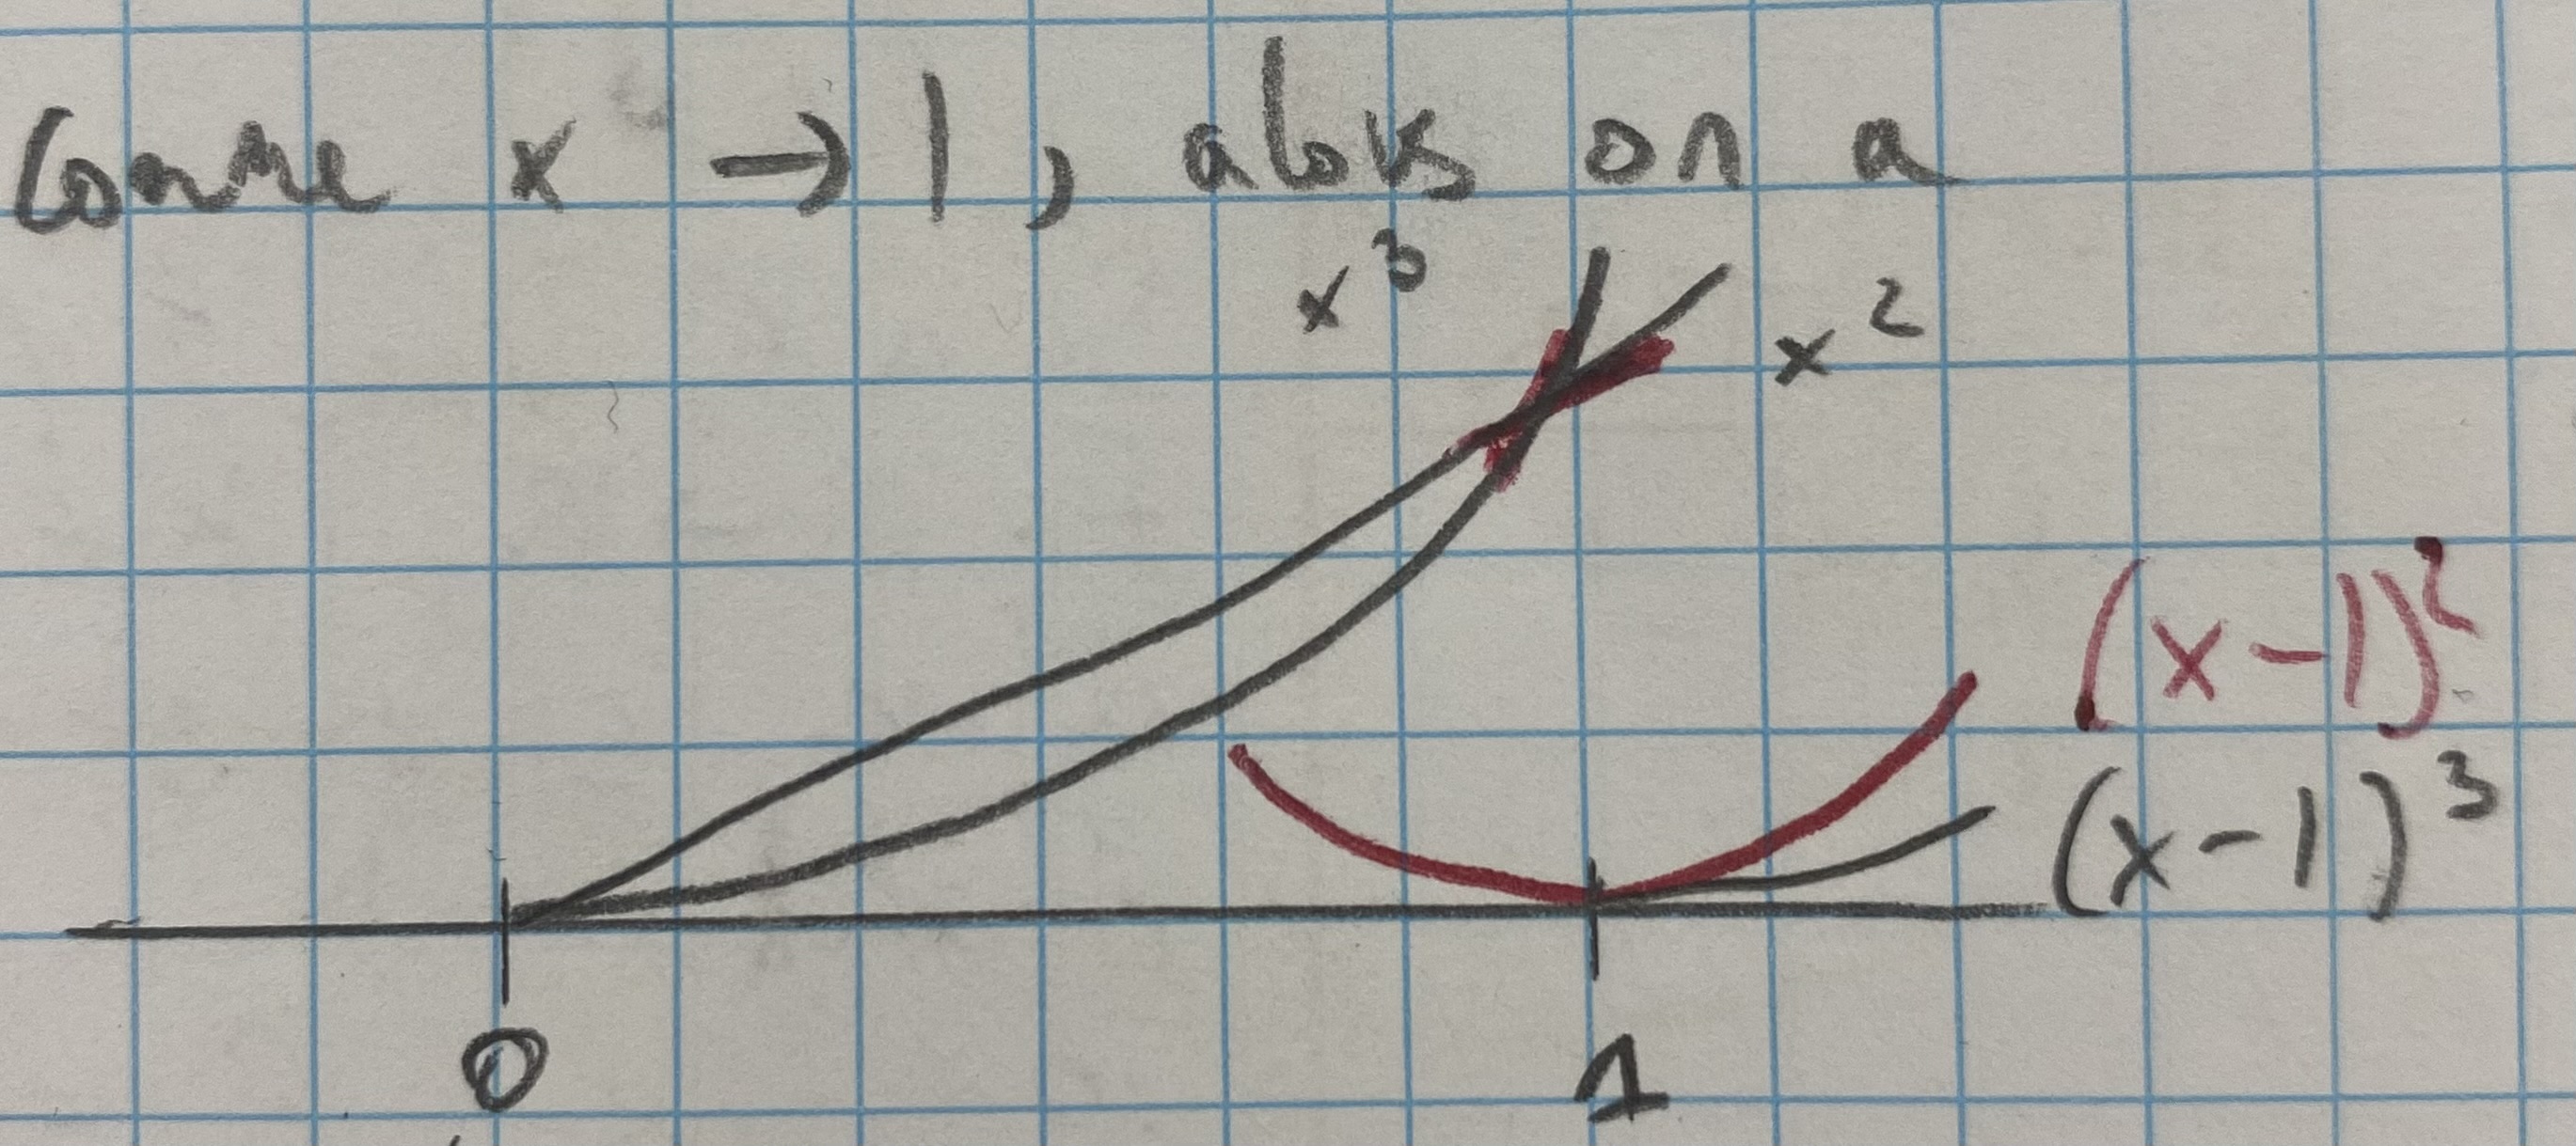 Comme x → 1, alors on a
x³
x²
(x-1)²
(x-1)³
0
1